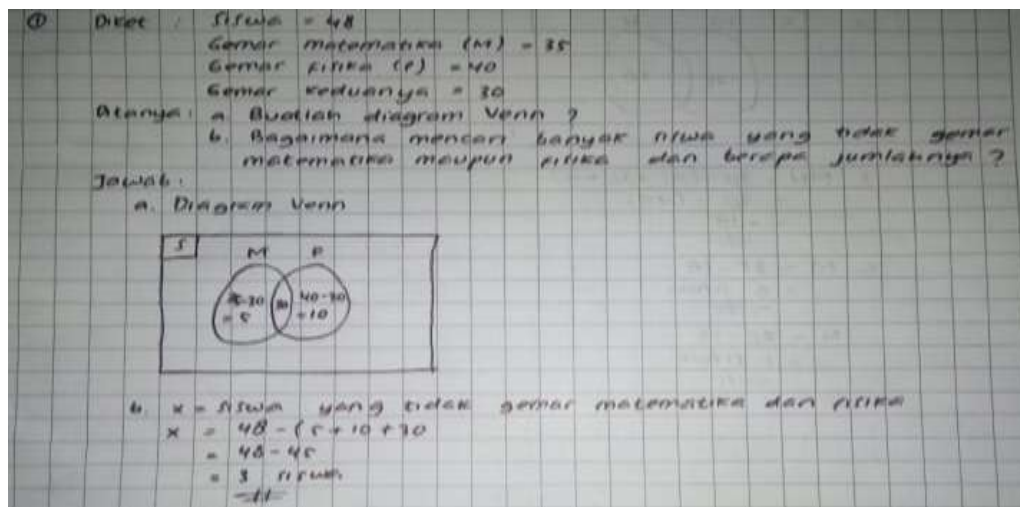 ① Diket : Siswa = 48
Gemar matematika (M) = 35
Gemar Fisika (F) = 40
Gemar keduanya = 30
Ditanya : a. Buatlah diagram Venn ?
b. Bagaimana mencari banyak siswa yang tidak gemar
matematika maupun fisika dan berapa jumlahnya ?
Jawab :
a. Diagram Venn
S
M F
35-30 30 40-30
= 5 = 10
b. x = siswa yang tidak gemar matematika dan fisika
x = 48 - (5 + 10 + 30
= 48 - 45
= 3 siswa